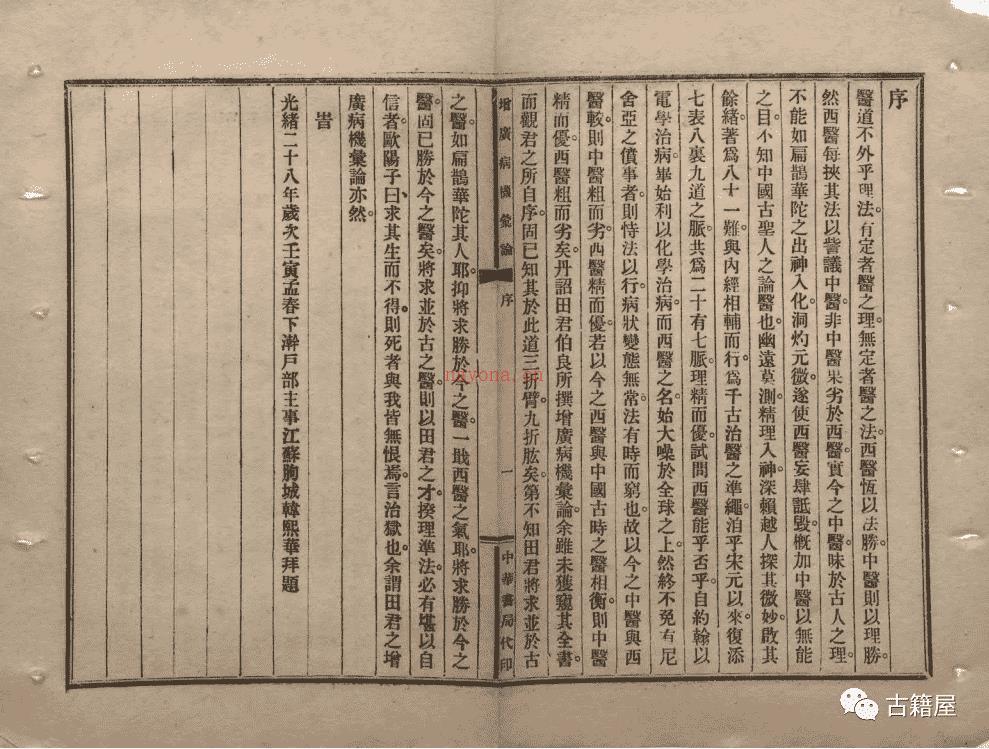 序
醫道不外乎理法。有定者醫之理。無定者醫之法。西醫恆以法勝。中醫則以理勝。
然西醫每挾其法以訾議中醫。非中醫果劣於西醫。實今之中醫昧於古人之理。
不能如扁鵲華陀之出神入化。洞灼元微。遂使西醫妄肆詆毀。概加中醫以無能
之目。不知中國古聖人之論醫也。幽遠莫測。精理入神。深賴越人探其微妙。啟其
餘緒。著爲八十一難。與內經相輔而行。爲千古治醫之準繩。洎乎宋元以來。復添
七表八裏九道之脈。共爲二十有七脈。理精而優。試問西醫能乎否乎。自約翰以
電學治病。畢始利以化學治病。而西醫之名。始大噪於全球之上。然終不免有尼
舍亞之僨事者。則恃法以行。病狀變態無常。法有時而窮也。故以今之中醫與西
醫較。則中醫粗而劣。西醫精而優。若以今之西醫與中國古時之醫相衡。則中醫
精而優。西醫粗而劣矣。丹詔田君伯良所撰增廣病機彙論。余雖未獲窺其全書。
而觀君之所自序。固已知其於此道三折臂。九折肱矣。第不知田君將求並於古
增廣病機彙論 序 一 中華書局代印
之醫。如扁鵲華陀其人耶。抑將求勝於今之醫。一戢西醫之氣耶。將求勝於今之
醫。固已勝於今之醫矣。將求並於古之醫。則以田君之才。揆理準法。必有堪以自
信者。歐陽子曰。求其生而不得。則死者與我皆無恨焉。言治獄也。余謂田君之增
廣病機彙論亦然。
旹
光緒二十八年歲次壬寅孟春下澣戶部主事江蘇朐城韓熙華拜題
nayona.cn
古籍屋